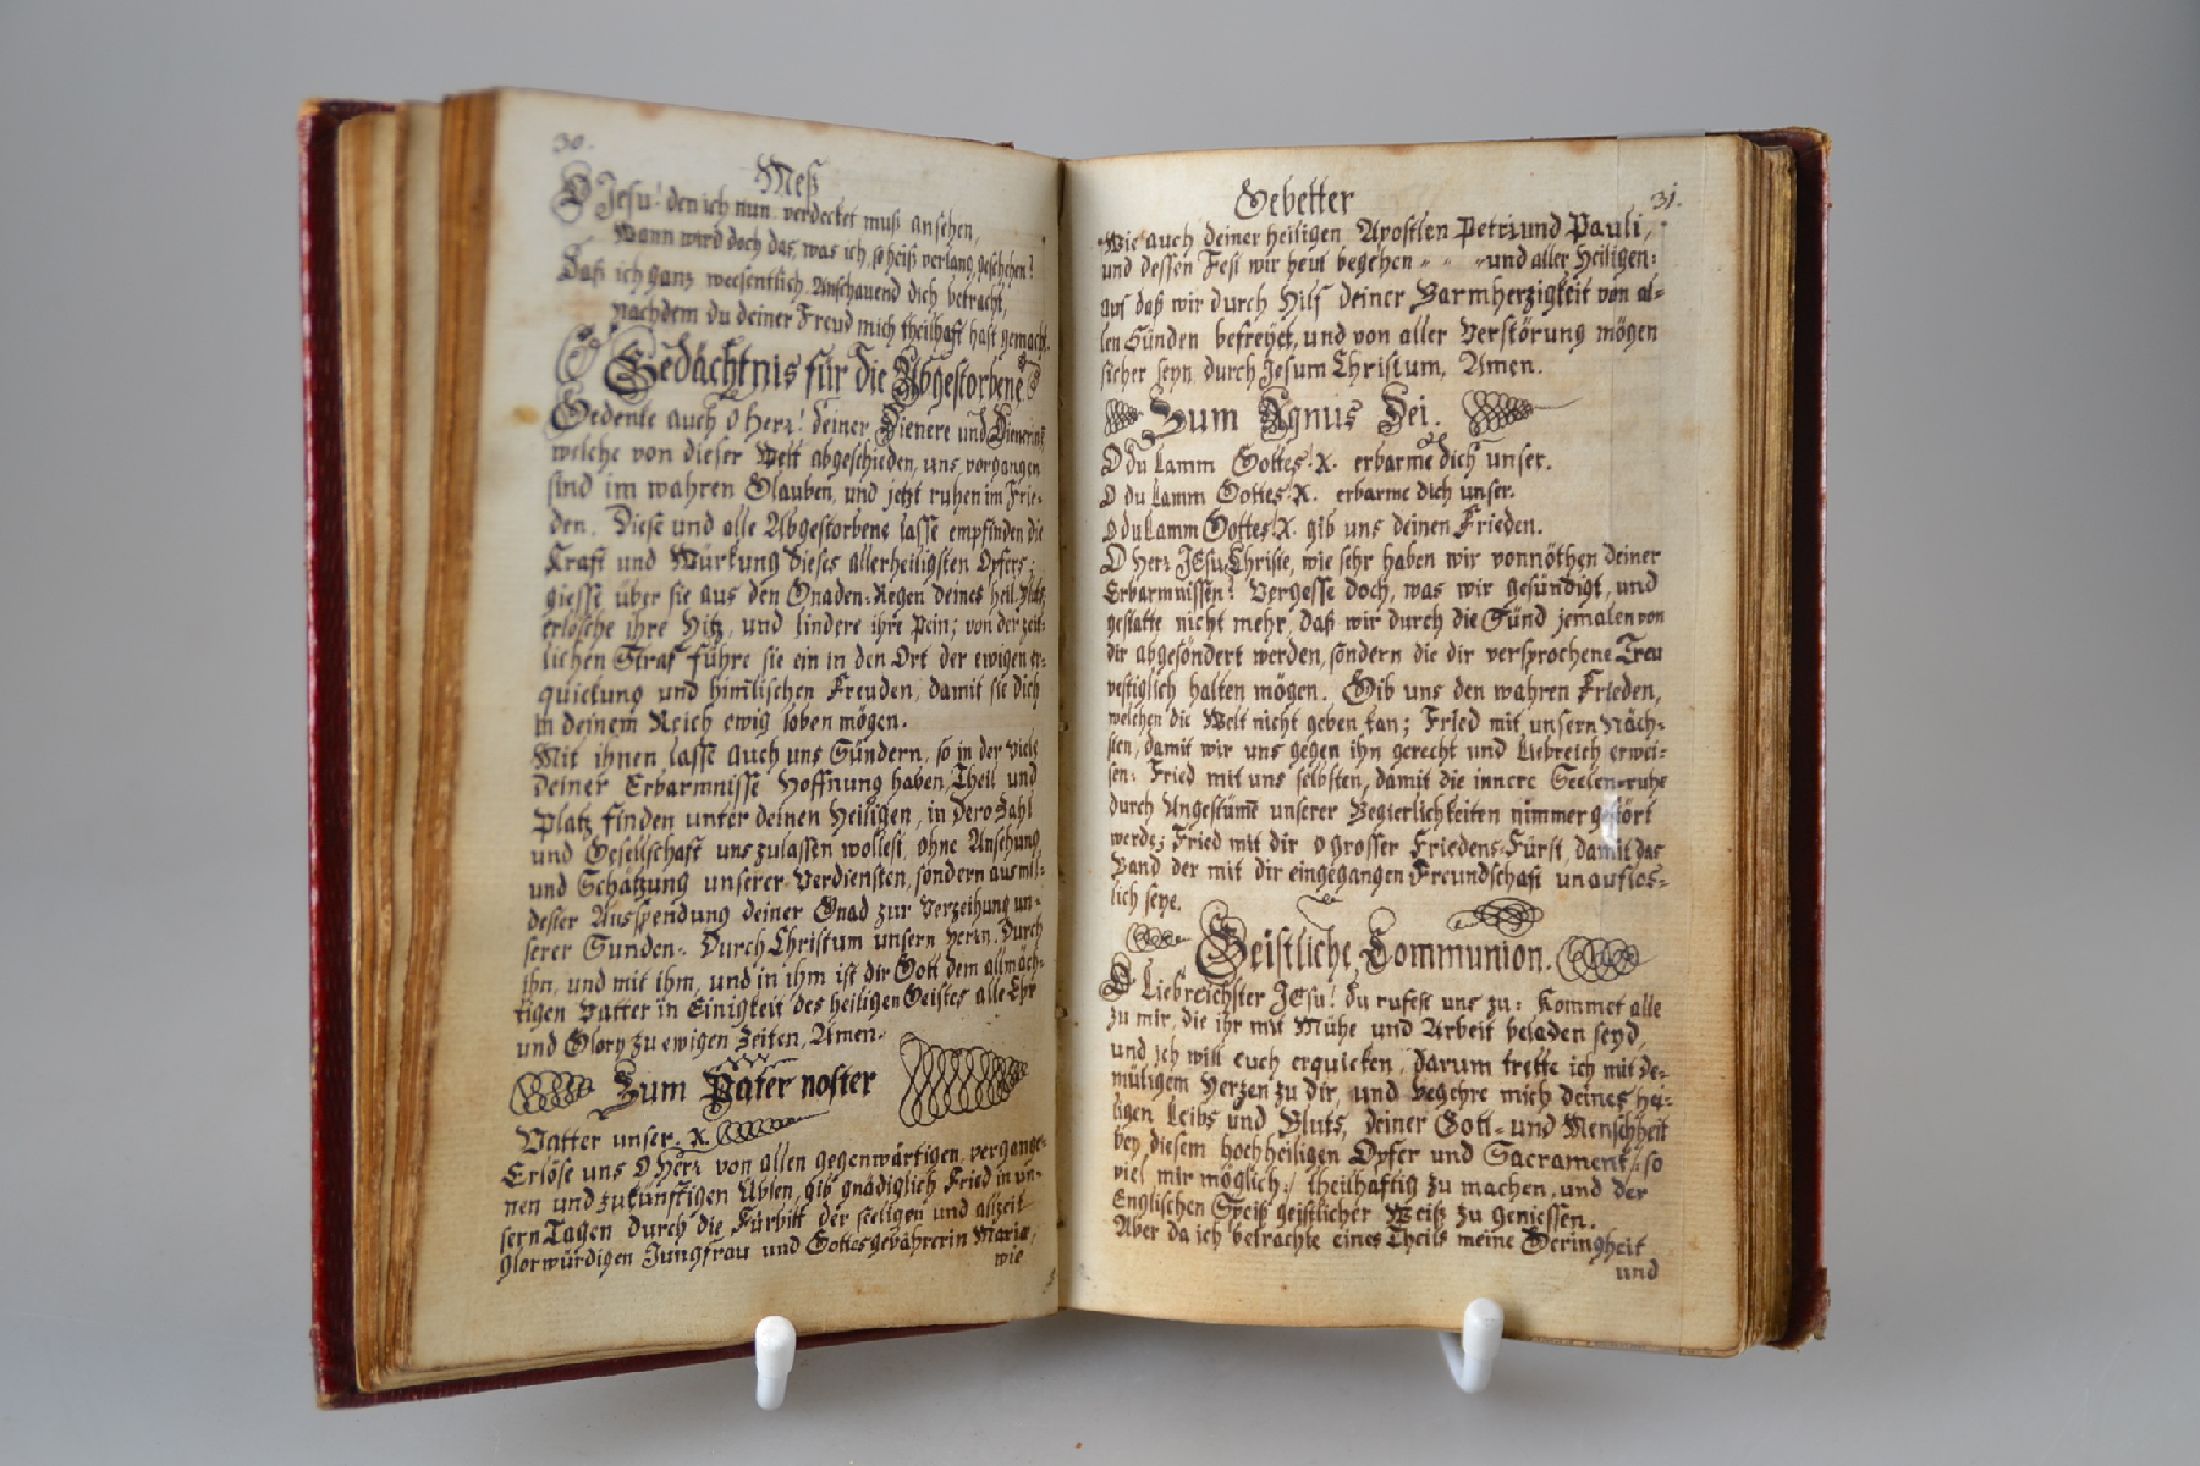 30.
Meß
O Jesu! den ich nun verdecket muß ansehen,
Wann wird doch das, was ich so heiß verlang, geschehen?
Daß ich ganz weesentlich Anschauend dich betracht,
nachdem du deiner Freud mich theilhaft hast gemacht.
Gedächtnis für die Abgestorbene
Gedenke auch O Herr! deiner Dienere und Dienerine,
welche von dieser Welt abgeschieden, uns vorgangen
sind im wahren Glauben, und jetzt ruhen im Frie-
den. Diese und alle Abgestorbene lasse empfinden die
Kraft und Würkung dieses allerheiligsten Opfers;
giesse über sie aus den Gnaden-Regen deines heil. Bluts,
erlösche ihre Hitz, und lindere ihre Pein; von der zeit-
lichen Straf führe sie ein in den Ort der ewigen er-
quickung und himlischen Freuden, damit sie dich
in deinem Reich ewig loben mögen.
Mit ihnen lasse auch uns Sündern, so in der viele
deiner Erbarmnisse Hoffnung haben, Theil und
Platz finden unter deinen Heiligen, in Dero Zahl
und Gesellschaft uns zulassen wollest, ohne Ansehung
und Schätzung unserer Verdiensten, sondern aus mil-
dester Ausspendung deiner Gnad zur Verzeihung un-
serer Sunden. Durch Christum unsern Herrn. Durch
ihn, und mit ihm, und in ihm ist dir Gott dem allmäch-
tigen Vatter in Einigkeit des heiligen Geistes alle Ehr
und Glory zu ewigen Zeiten, Amen.
Zum Pater noster
Vatter unser. X.
Erlöse uns O Herr von allen gegenwärtigen, vergange-
nen und zukünftigen Üblen, gib gnädiglich Fried in un-
sern Tagen durch die Fürbitt der seeligen und allzeit
glorwürdigen Jungfrau und Gottesgebährerin Maria,
wie
Gebetter
31.
Wie auch deiner heiligen Apostlen Petri und Pauli,
und dessen Fest wir heut begehen " " " und aller Heiligen:
aus daß wir durch Hilf deiner Barmherzigkeit von al-
len Sünden befreyet, und von aller Verstörung mögen
sicher seyn durch Jesum Christum, Amen.
Zum Agnus Dei.
O du Lamm Gottes X. erbarme dich unser.
O du Lamm Gottes X. erbarme dich unser.
O du Lamm Gottes X. gib uns deinen Frieden.
O Herr JEsu Christe, wie sehr haben wir vonnöthen deiner
Erbarmnissen? Vergesse doch, was wir gesündigt, und
gestatte nicht mehr, daß wir durch die Sünd jemalen von
dir abgesöndert werden, sondern die dir versprochene Treu
vestiglich halten mögen. Gib uns den wahren Frieden,
welchen die Welt nicht geben kan; Fried mit unsern Näch-
sten, damit wir uns gegen ihn gerecht und Liebreich erwei-
sen: Fried mit uns selbsten, damit die innere Seelen-ruhe
durch Ungestüme unserer Begierlichkeiten nimmer gestört
werde; Fried mit dir O grosser Friedens-Fürst, damit das
Band der mit dir eingegangen Freundschaft unauflös-
lich seye.
Geistliche Communion.
O Liebreichster JEsu! du rufest uns zu: Kommet alle
zu mir, die ihr mit Mühe und Arbeit beladen seyd,
und ich will euch erquicken, darum trette ich mit de-
mütigem Herzen zu dir, und begehre mich deines Hei-
ligen Leibs und Bluts, deiner Gott- und Menschheit
bey diesem hochheiligen Opfer und Sacrament /: so
viel mir möglich :/ theilhaftig zu machen, und der
Englischen Speiß geistlicher Weiß zu geniessen.
Aber da ich betrachte eines Theils meine Geringheit
und